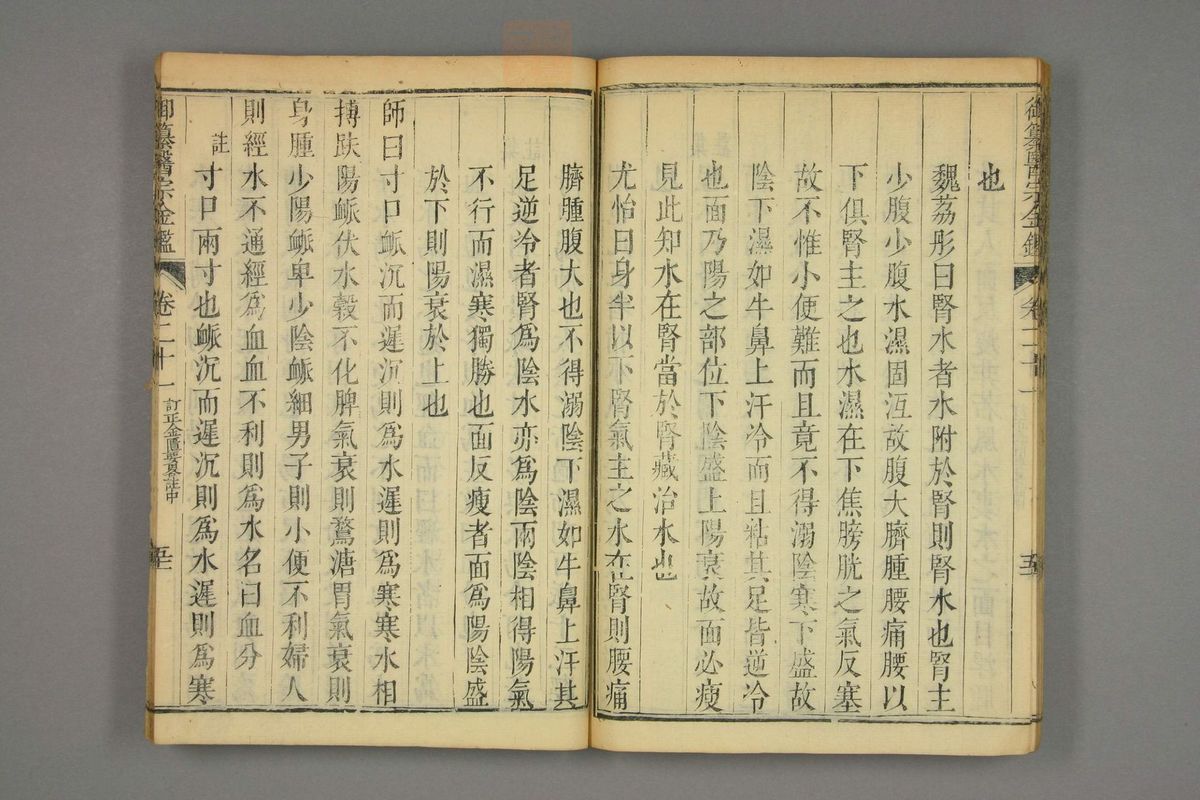 御纂醫宗金鑑
卷二十一
五
也
魏荔彤曰腎水者水附於腎則腎水也腎主
少腹少腹水濕固沍故腹大臍腫腰痛腰以
下俱腎主之也水濕在下焦膀胱之氣反塞
故不惟小便難而且竟不得溺陰寒下盛故
陰下濕如牛鼻上汗冷而且粘其足皆逆冷
也面乃陽之部位下陰盛上陽衰故面必瘦
見此知水在腎當於腎藏治水也
尤怡曰身半以下腎氣主之水在腎則腰痛
臍腫腹大也不得溺陰下濕如牛鼻上汗其
足逆冷者腎為陰水亦為陰兩陰相得陽氣
不行而濕寒獨勝也面反瘦者面為陽陰盛
於下則陽衰於上也
師曰寸口脈沉而遲沉則為水遲則為寒寒水相
搏趺陽脈伏水穀不化脾氣衰則鶩溏胃氣衰則
身腫少陽脈卑少陰脈細男子則小便不利婦人
則經水不通經為血血不利則為水名曰血分
註寸口兩寸也脈沉而遲沉則為水遲則為寒
御纂醫宗金鑑
卷二十一
訂正金匱要畧註中